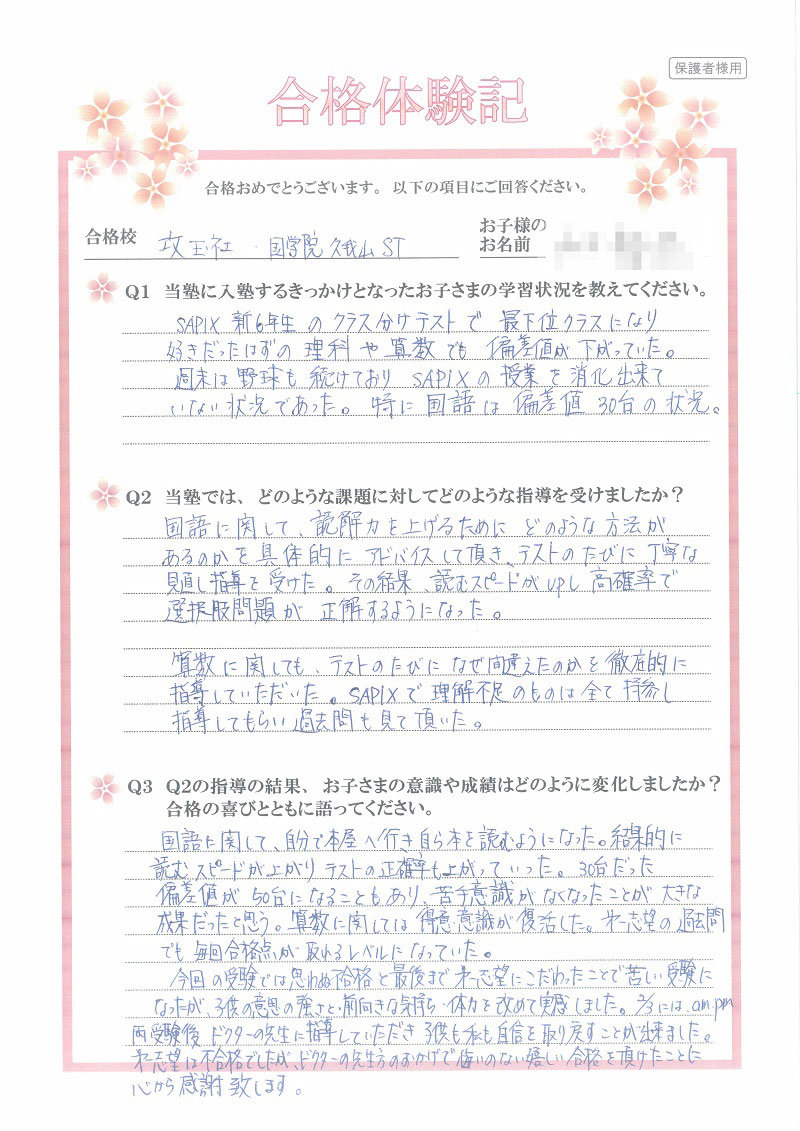 保護者様用
合格体験記
合格おめでとうございます。以下の項目にご回答ください。
合格校 攻玉社・国学院久我山ST
お子様の
お名前
Q1 当塾に入塾するきっかけとなったお子さまの学習状況を教えてください。
SAPIX 新6年生のクラス分けテストで最下位クラスになり
好きだったはずの理科や算数でも偏差値が下がっていた。
週末は野球も続けており SAPIXの授業を消化出来て
いない状況であった。特に国語は偏差値30台の状況。
Q2 当塾では、どのような課題に対してどのような指導を受けましたか？
国語に関して、読解力を上げるためにどのような方法が
あるのかを具体的にアドバイスして頂き、テストのたびに丁寧な
見直し指導を受けた。その結果、読むスピードがupし高確率で
選択肢問題が正解するようになった。
算数に関しても、テストのたびになぜ間違えたのかを徹底的に
指導していただいた。SAPIXで理解不足のものは全て持参し
指導してもらい過去問も見て頂いた。
Q3 Q2の指導の結果、お子さまの意識や成績はどのように変化しましたか？
合格の喜びとともに語ってください。
国語に関して、自分で本屋へ行き自ら本を読むようになった。結果的に
読むスピードが上がりテストの正確率も上がっていった。30台だった
偏差値が50台になることもあり、苦手意識がなくなったことが大きな
成果だったと思う。算数に関しては得意意識が復活した。㐧一志望の過去問
でも毎回合格点が取れるレベルになっていた。
今回の受験では思わぬ不合格と最後まで㐧一志望にこだわったことで苦しい受験に
なったが、子供の意思の強さと前向きな気持ち・体力を改めて実感しました。2/3には、am.pm
両受験後ドクターの先生に指導していただき子供も私も自信を取り戻すことが出来ました。
㐧一志望は不合格でしたが、ドクターの先生方のおかげで悔いのない嬉しい合格を頂けたことに
心から感謝致します。